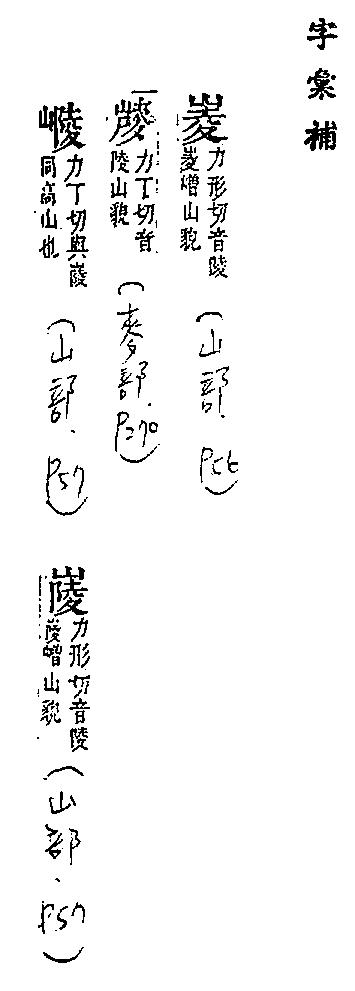 字彙補
崚 力形切音陵
崚嶒山貌
(山部．P56)
力丁切音
陵山貌
(麥部．P270)
力丁切與㥄
同高山也
(山部．P57)
力形切音陵
嶒山貌
(山部．P57)